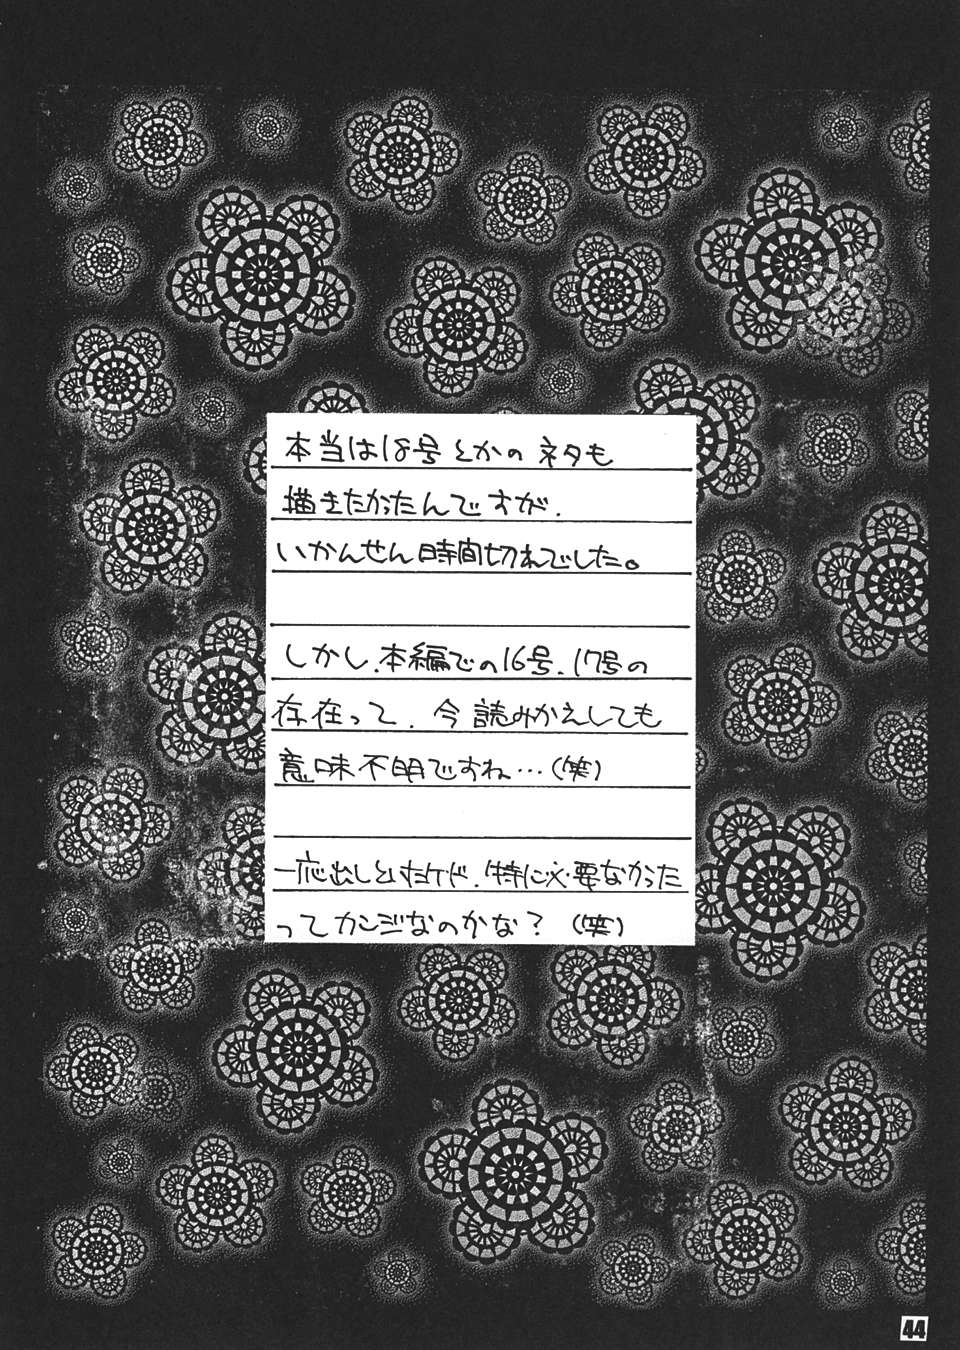 本当は18号とかのネタも
描きたかったんですが.
いかんせん時間切れでした。
しかし.本編での16号.17号の
存在って.今読みかえしても
意味不明ですね…(笑)
一応出しといたけど.特に必要なかった
ってカンジなのかな？(笑)
44